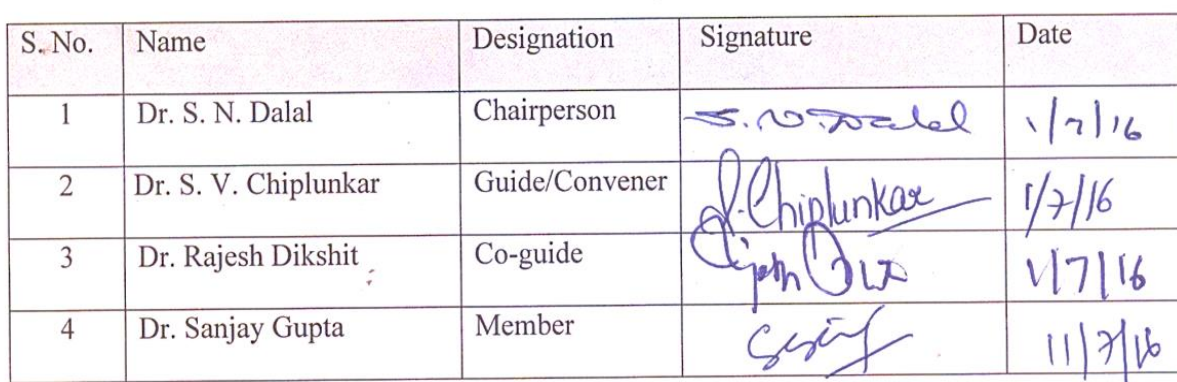 S. No. Name Designation Signature Date
1 Dr. S. N. Dalal Chairperson S. N. Dalal 1/7/16
2 Dr. S. V. Chiplunkar Guide/Convener S. Chiplunkar 1/7/16
3 Dr. Rajesh Dikshit Co-guide 1/7/16
4 Dr. Sanjay Gupta Member 11/7/16